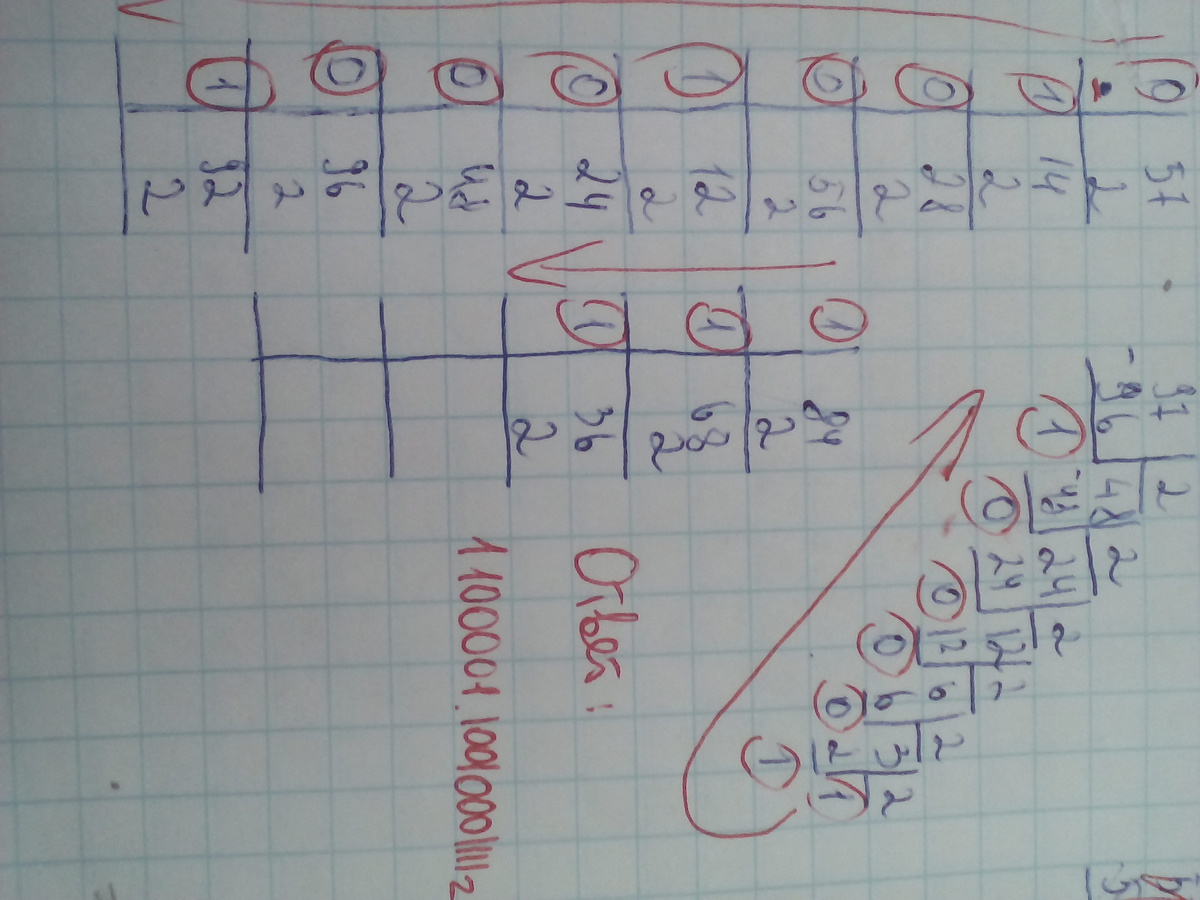 0 57
2
1 14
2
0 28
2
0 56
2
1 12
2
0 24
2
0 48
2
0 96
2
1 92
2
1 84
2
1 68
2
1 36
2
97 2
-96 48 2
1 -48 24 2
0 24 12 2
0 12 6 2
0 6 3 2
0 2 1
1
Ответ:
1100001.10010001111₂